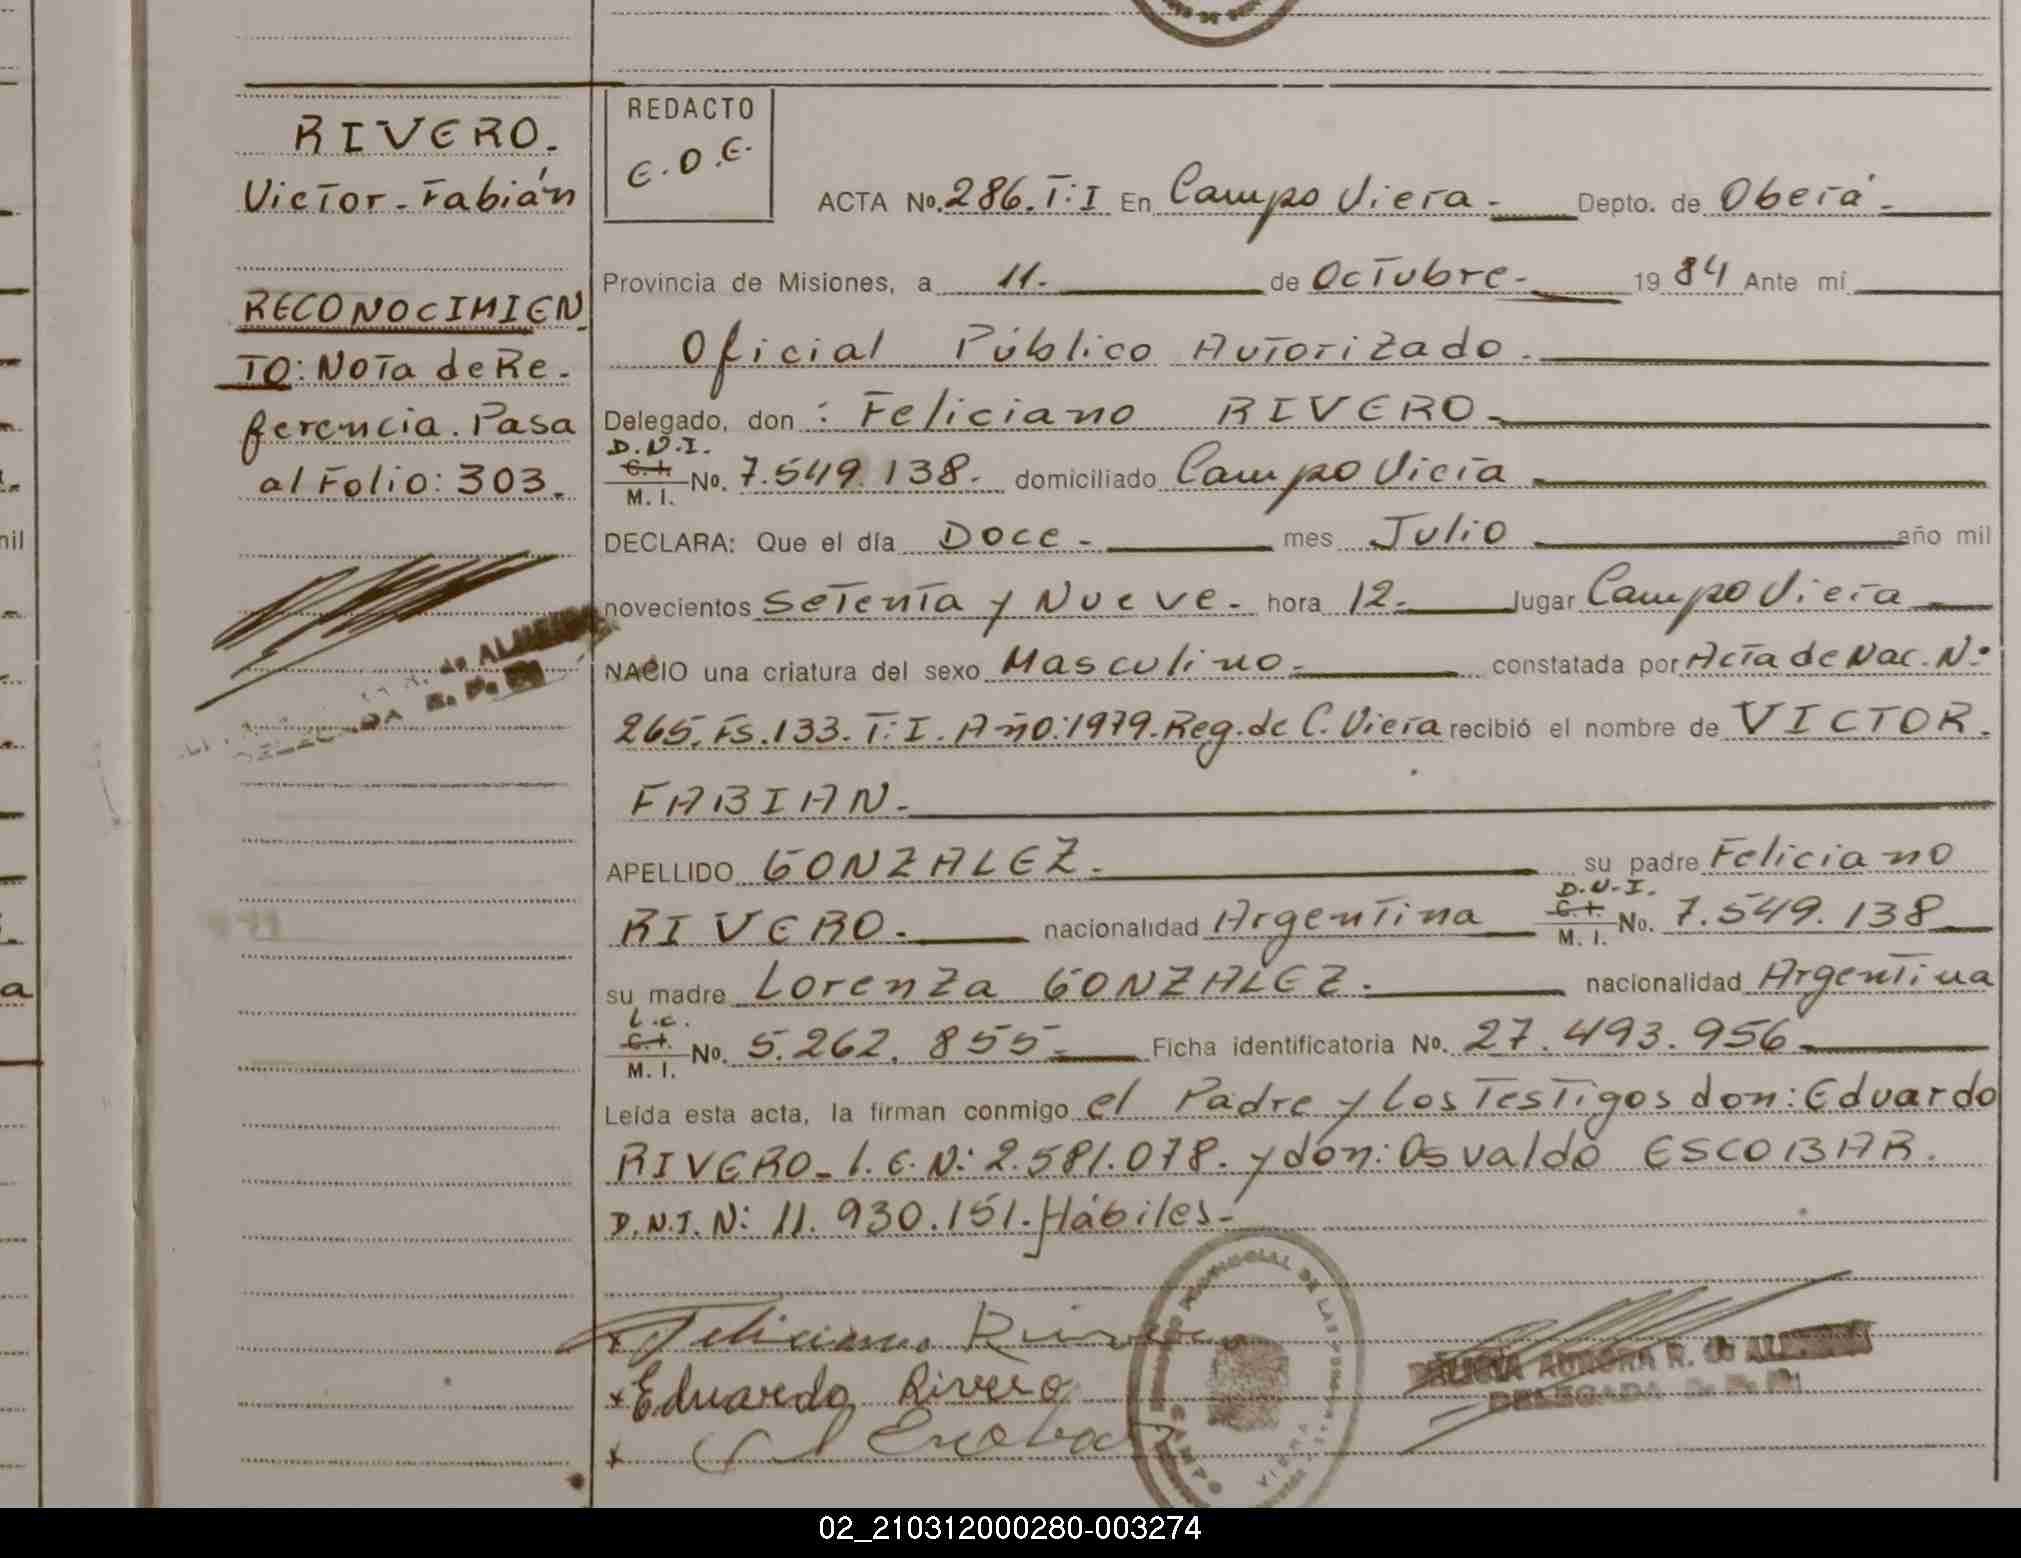 RIVERO.
Victor-Fabián
RECONOCIMIEN
TO: Nota de Re-
ferencia. Pasa
al Folio: 303.
de ALMEIDA
REDACTO
E.O.E.
ACTA No. 286.T:I En Campo Viera.- Depto. de Oberá.-
Provincia de Misiones, a 11.- de Octubre.- 1984 Ante mí
Oficial Público Autorizado.-
Delegado, don: Feliciano RIVERO.-
D.N.I.
C.I.
M. I. No. 7.549.138.- domiciliado Campo Viera
DECLARA: Que el día Doce.- mes Julio año mil
novecientos Setenta y Nueve.- hora 12.- lugar Campo Viera
NACIO una criatura del sexo Masculino.- constatada por Acta de Nac. Nº
265. Fs.133. T:I. Año:1979.Reg.de C.Viera recibió el nombre de VICTOR.
FABIAN.-
APELLIDO GONZALEZ.- su padre Feliciano
RIVERO.- nacionalidad Argentina
D.N.I.
C.I.
M. I. No. 7.549.138
su madre Lorenza GONZALEZ.- nacionalidad Argentina
L.C.
C.I.
M. I. No. 5.262.855.- Ficha identificatoria No. 27.493.956.-
Leída esta acta, la firman conmigo el Padre y los Testigos don: Eduardo
RIVERO- L.E.N: 2.581.078. y don: Osvaldo ESCOBAR.
D.N.I.N: 11.930.151. Hábiles.-
Feliciano Rivero
Eduardo Rivero
Escobar
ALICIA AURORA R. de ALMEIDA
DELEGADA
02_210312000280-003274